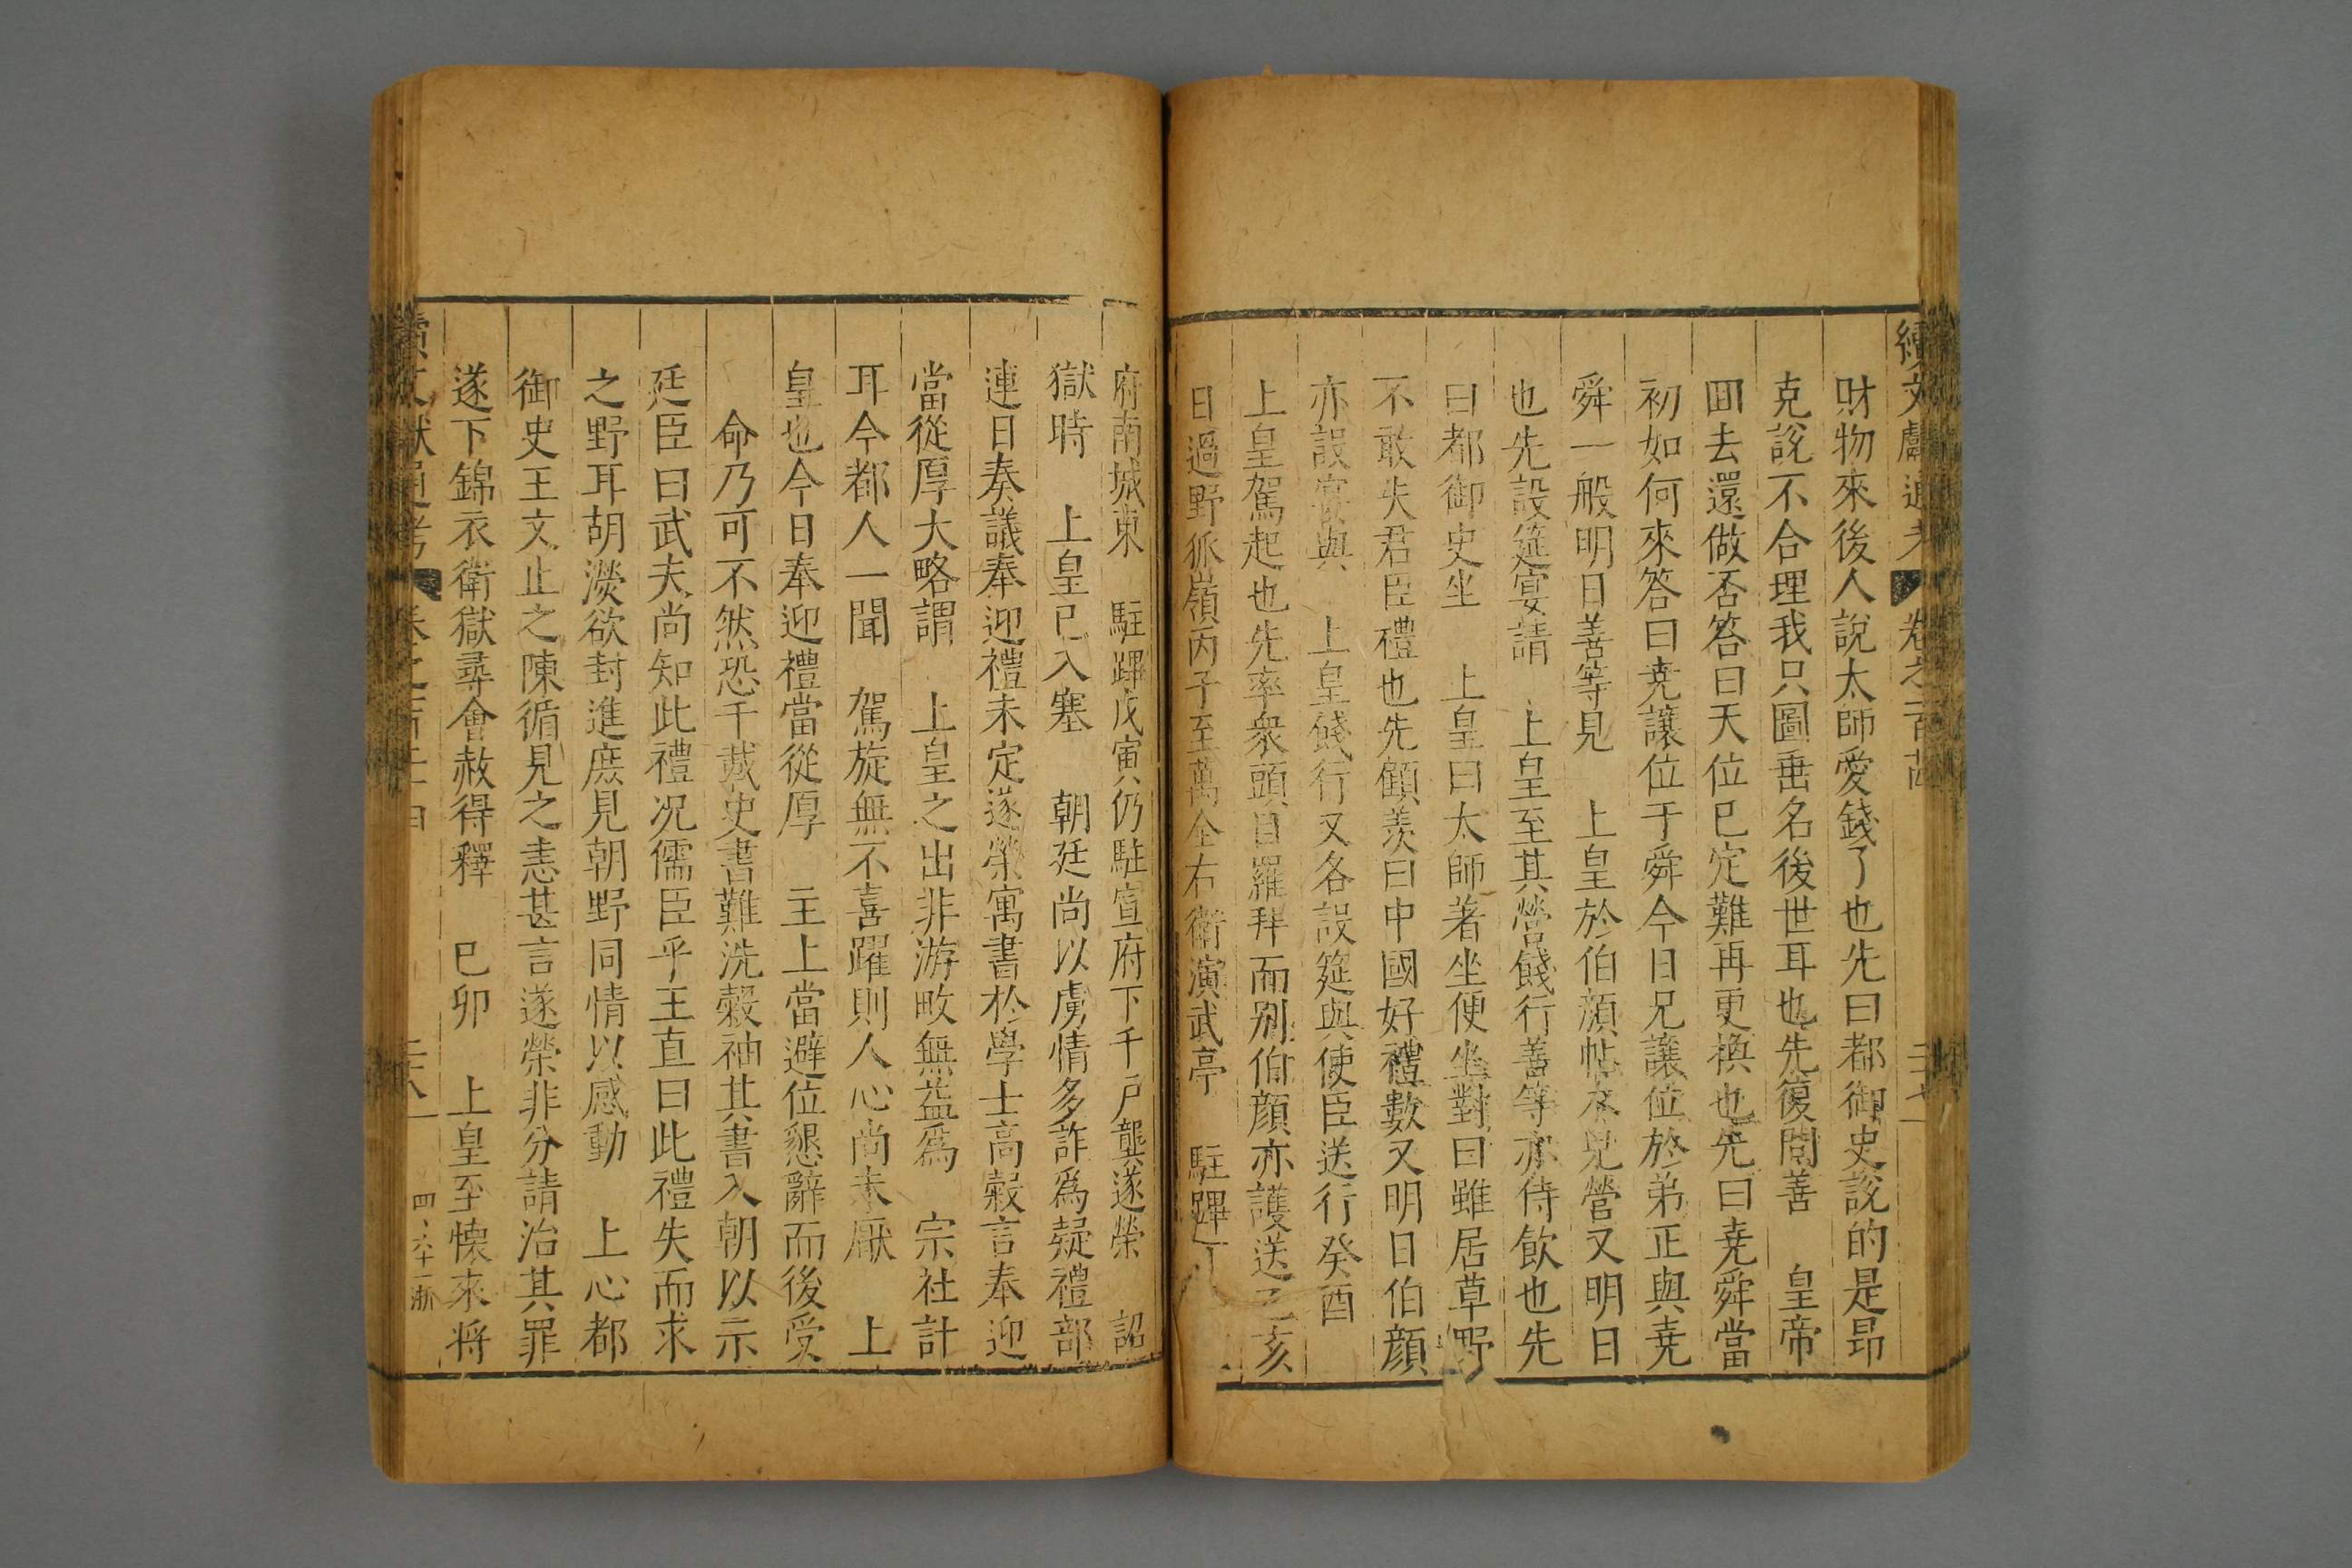 續文獻通考 卷之一百 二十七
財物來後人說太師愛錢了也先曰都御史說的是昂
克說不合理我只圖垂名後世耳也先復問善 皇帝
回去還做否答曰天位已定難再更換也先曰尭舜當
初如何來答曰尭讓位于舜今日兄讓位於弟正與尭
舜一般明日善等見 上皇於伯顏帖木兒營又明日
也先設筵宴請 上皇至其營餞行善等亦侍飲也先
曰都御史坐 上皇曰太師著坐便坐對曰雖居草野
不敢失君臣禮也先顧羨曰中國好禮數又明日伯顏
亦設宴與 上皇餞行又各設筵與使臣送行癸酉
上皇駕起也先率衆頭目羅拜而别伯顏亦護送乙亥
日過野狐嶺丙子至萬全右衛演武亭 駐蹕
府南城東 駐蹕戊寅仍駐宣府下千戸龔遂榮 詔
獄時 上皇已入塞 朝廷尚以虜情多詐爲疑禮部
連日奏議奉迎禮未定遂榮寓書於學士高穀言奉迎
當從厚大略謂 上皇之出非游畋無益爲 宗社計
耳今都人一聞 駕旋無不喜躍則人心尚未厭 上
皇也今日奉迎禮當從厚 主上當避位懇辭而後受
命乃可不然恐千載史書難洗穀袖其書入朝以示
廷臣曰武夫尚知此禮况儒臣乎王直曰此禮失而求
之野耳胡濙欲封進庶見朝野同情以感動 上心都
御史王文止之陳循見之恚甚言遂榮非分請治其罪
遂下錦衣衛獄尋會赦得釋 巳卯 上皇至懷來将
續文獻通考 卷之一百二十四 二十八 四、六十一浙